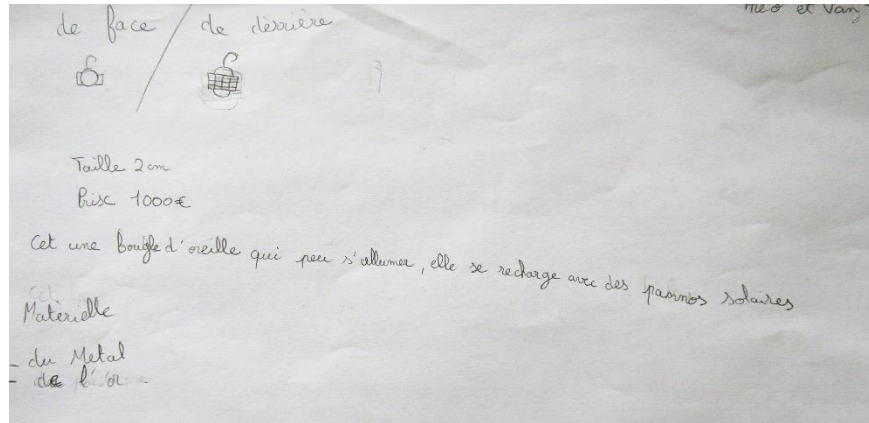 et Van
de face / de dèrrière
Taille 2 cm
Prix 1000€
Cet une Bougle d'oreille qui peu s'allumer, elle se recharge avec des pannos solaires
Matèrielle
- du Metal
- de l'or